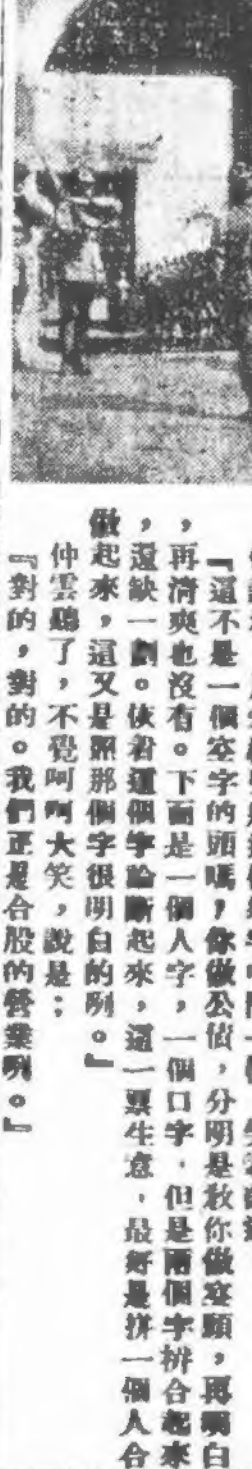 『這不是一個空字的頭嗎，你做公債，分明是教你做空頭，再明白
，再清爽也沒有。下面是一個人字，一個口字，但是兩個字拚合起來
，還缺一劃。依着這個字論斷起來，這一票生意，最好是拼一個人合
做起來，這又是照那個字很明白的咧。』
仲雲聽了，不覺呵呵大笑，說是：
『對的，對的。我們正是合股的營業咧。』